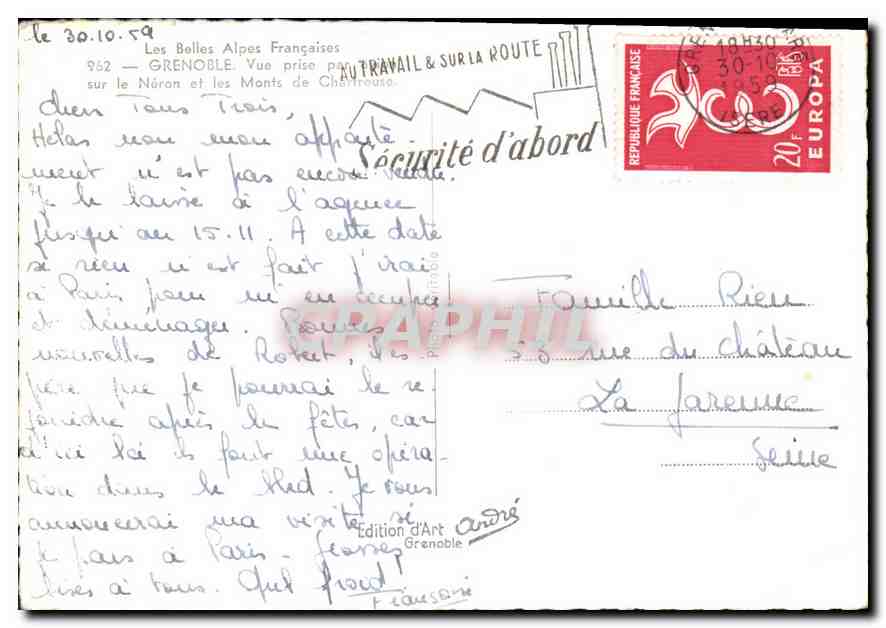 le 30.10.59
Les Belles Alpes Françaises
952 — GRENOBLE. Vue prise par
sur le Néron et les Monts de Chartreuse.
AU TRAVAIL & SUR LA ROUTE
Sécurité d'abord
18H30
30-10
1959
ISERE
REPUBLIQUE FRANÇAISE
20F
EUROPA
chers Tous Trois,
Helas non mon apparte
ment n'est pas encore vendu.
Je le laisse à l'agence
jusqu'au 15.11. A cette date
si rien n'est fait j'irai
à Paris pour m'en occuper
et déménager. Bonnes
nouvelles de Robert, J'es
père que je pourrai le re
joindre après les fêtes, car
d'ici là ils font une opéra-
tion dans le Sud. Je vous
annoncerai ma visite si
je pars à Paris - Grosses
bises à tous. Quel froid!
Françoise
Famille Rieu
53 rue du Château
La Garenne
Seine
CPAPHIL
Edition d'Art André
Grenoble